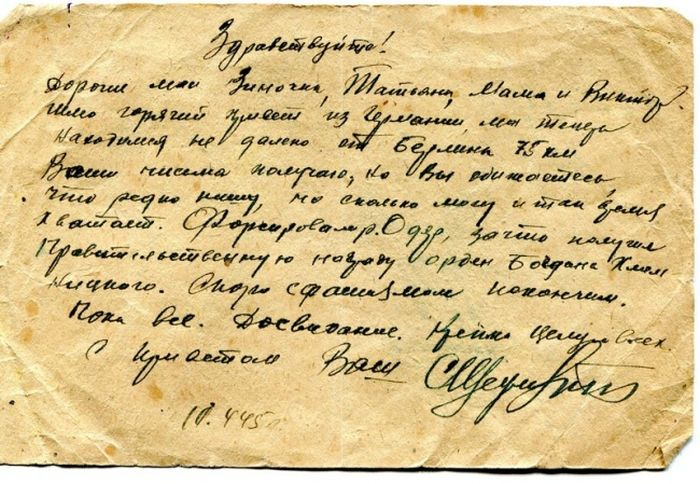 Здравствуйте!
Дорогие мои Зиночка, Татьяна, Мама и Виктор.
Шлю горячий привет из Германии, мы теперь
находимся не далеко от Берлина 75 км
Ваши письма получаю, но Вы обижаетесь,
что редко пишу, но сколько могу и так время
хватает. Форсировал р. Одер, за что получил
Правительственную награду орден Богдана Хмель
ницкого. Скоро с фашизмом покончим.
Пока все. Досвидание. Крепко целую всех
С приветом Ваш
10.4.45г